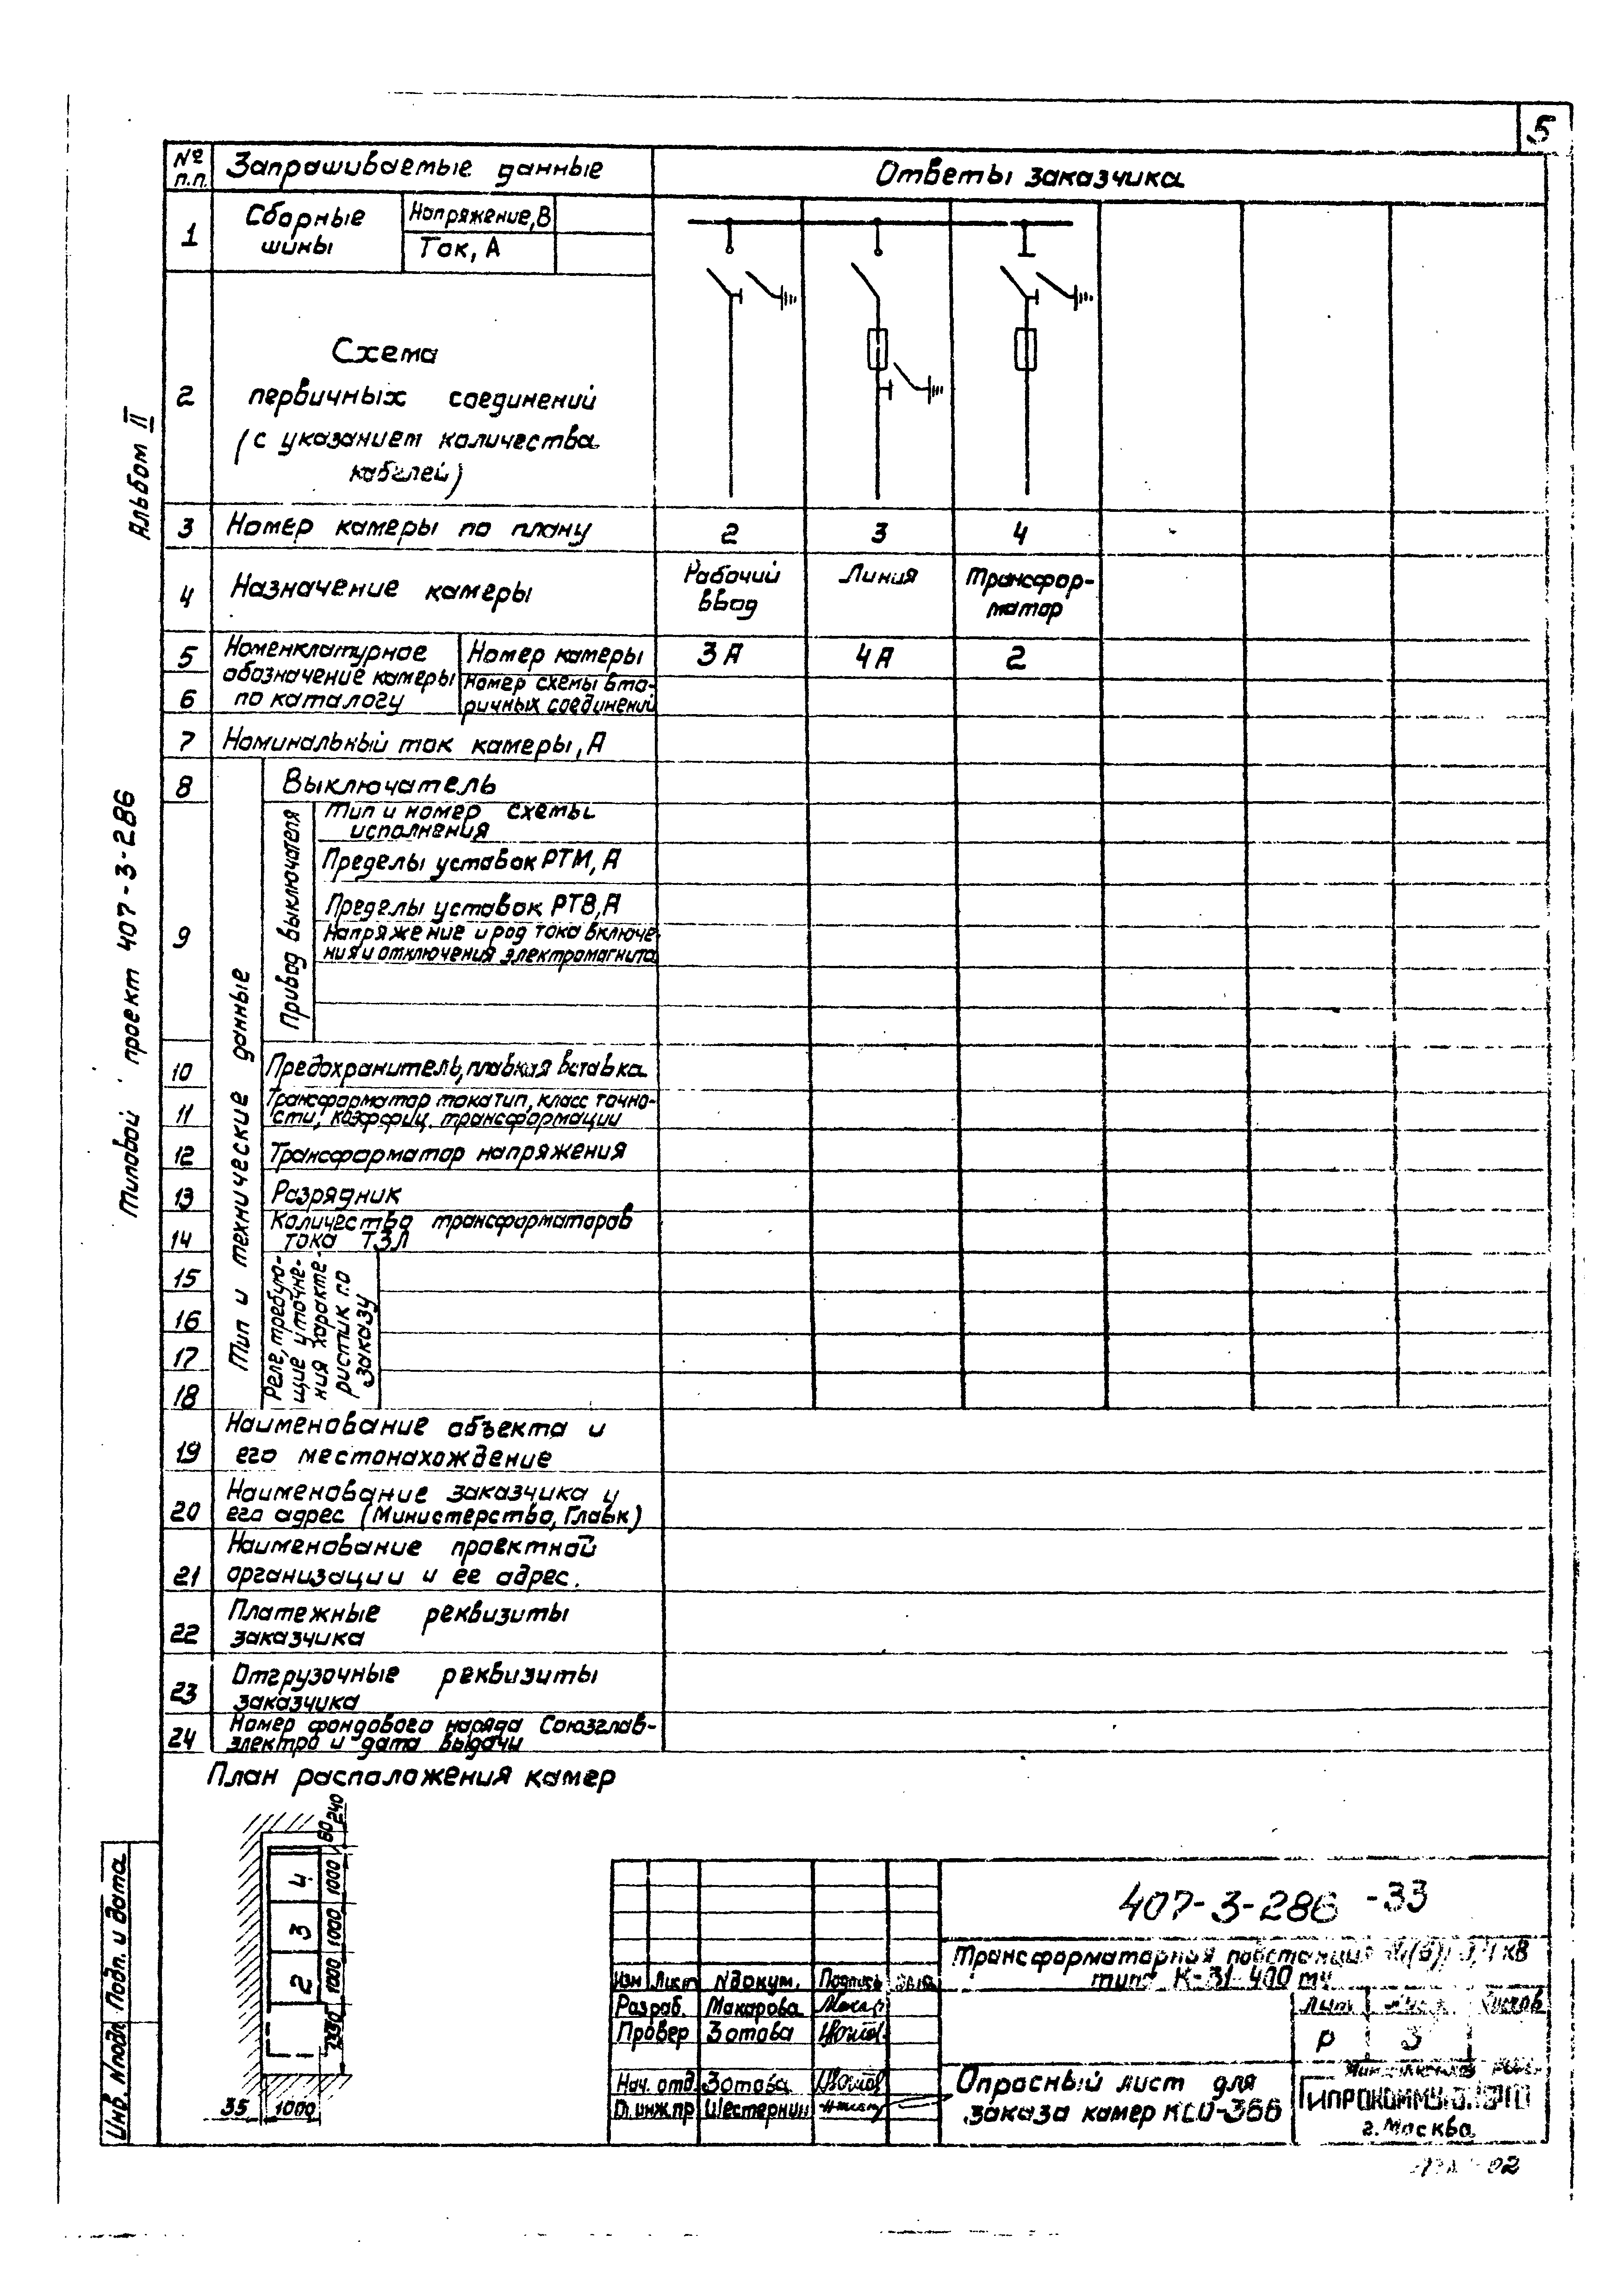 5
№ п.п. Запрашиваемые данные Ответы заказчика
1 Сборные шины Напряжение, В
Ток, А
2 Схема
первичных соединений
(с указанием количества
кабелей)
3 Номер камеры по плану 2 3 4
4 Назначение камеры Рабочий ввод Линия Трансформатор
5 Номенклатурное Номер камеры 3А 4А 2
обозначение камеры Номер схемы вто-
6 по каталогу ричных соединений
7 Номинальный ток камеры, А
Тип и технические данные
8 Выключатель
9 Привод выключателя
Тип и номер схемы
исполнения
Пределы уставок РТМ, А
Пределы уставок РТВ, А
Напряжение и род тока включе-
ния и отключения электромагнита
10 Предохранитель, плавкая вставка
Трансформатор тока тип, класс точно-
11 сти, коэффиц. трансформации
12 Трансформатор напряжения
13 Разрядник
Количество трансформаторов
14 тока ТЗЛ
Реле, требую-
щие уточне-
ния характе-
ристик по
заказу
15
16
17
18
Наименование объекта и
19 его местонахождение
Наименование заказчика и
20 его адрес (Министерство, Главк)
Наименование проектной
21 организации и ее адрес.
Платежные реквизиты
22 заказчика
Отгрузочные реквизиты
23 заказчика
Номер фондового наряда Союзглав-
24 электро и дата выдачи
План расположения камер
240
60
4 1000
3 1000
2 1000
35 1000
Альбом II
Типовой проект 407-3-286
Инв. № подл. Подп. и дата
407-3-286 -33
Трансформаторная подстанция
типа К-31-400
Изм Лист № докум. Подпись
Разраб. Макарова
Провер Зотова
Нач. отд. Зотова
Гл. инж. пр Шестернин
Р 3
Опросный лист для
заказа камер КСО-366
г. Москва
02